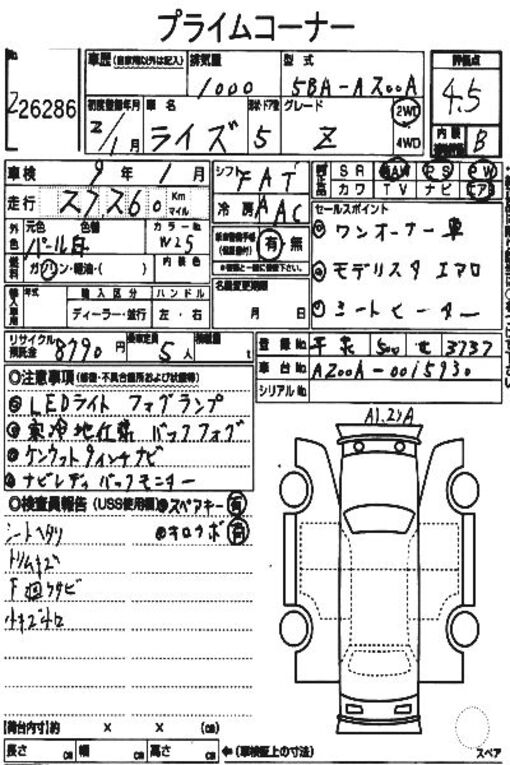 プライムコーナー
No.
226286
車歴 (自家用以外は記入) 排気量 型式 評価点
1000 5BA-A200A 4.5
初度登録年月 車名 形状・ドア数 グレード 2WD
2/1月 ライズ 5 Z 4WD
内装 B
車検 9年1月 シフト FAT
SR AW PS PW
カワ TV ナビ エアB
走行 27,260 Km マイル 冷房 AAC
セールスポイント
外色 元色 色替 カラーNo.
パール白 W25
有・無
ワンオーナー車
燃料 ガソリン・軽油・( ) 内装色
モデリスタ エアロ
年式 輸入区分 ハンドル 名義変更期限
ディーラー・並行 左・右 月 日
シートヒーター
リサイクル預託金 8790円 乗車定員 5人 積載量 t
登録No. 500 3737
車台No. A200A-0015930
シリアルNo.
◎注意事項 (修復・不具合箇所および状態等)
LEDライト フォグランプ
寒冷地仕様 バックフォグ
ケンウッド9インチナビ
ナビレディ バックモニター
◎検査員報告 (USS使用欄) スペアキー有
シートヘタリ キロクボ有
トリムキズ
下回りサビ
小キズ小凹
A1,2,A
【荷台内寸】約 × × (cm)
長さ cm 幅 cm 高さ cm ←(車検証上の寸法)
スペア